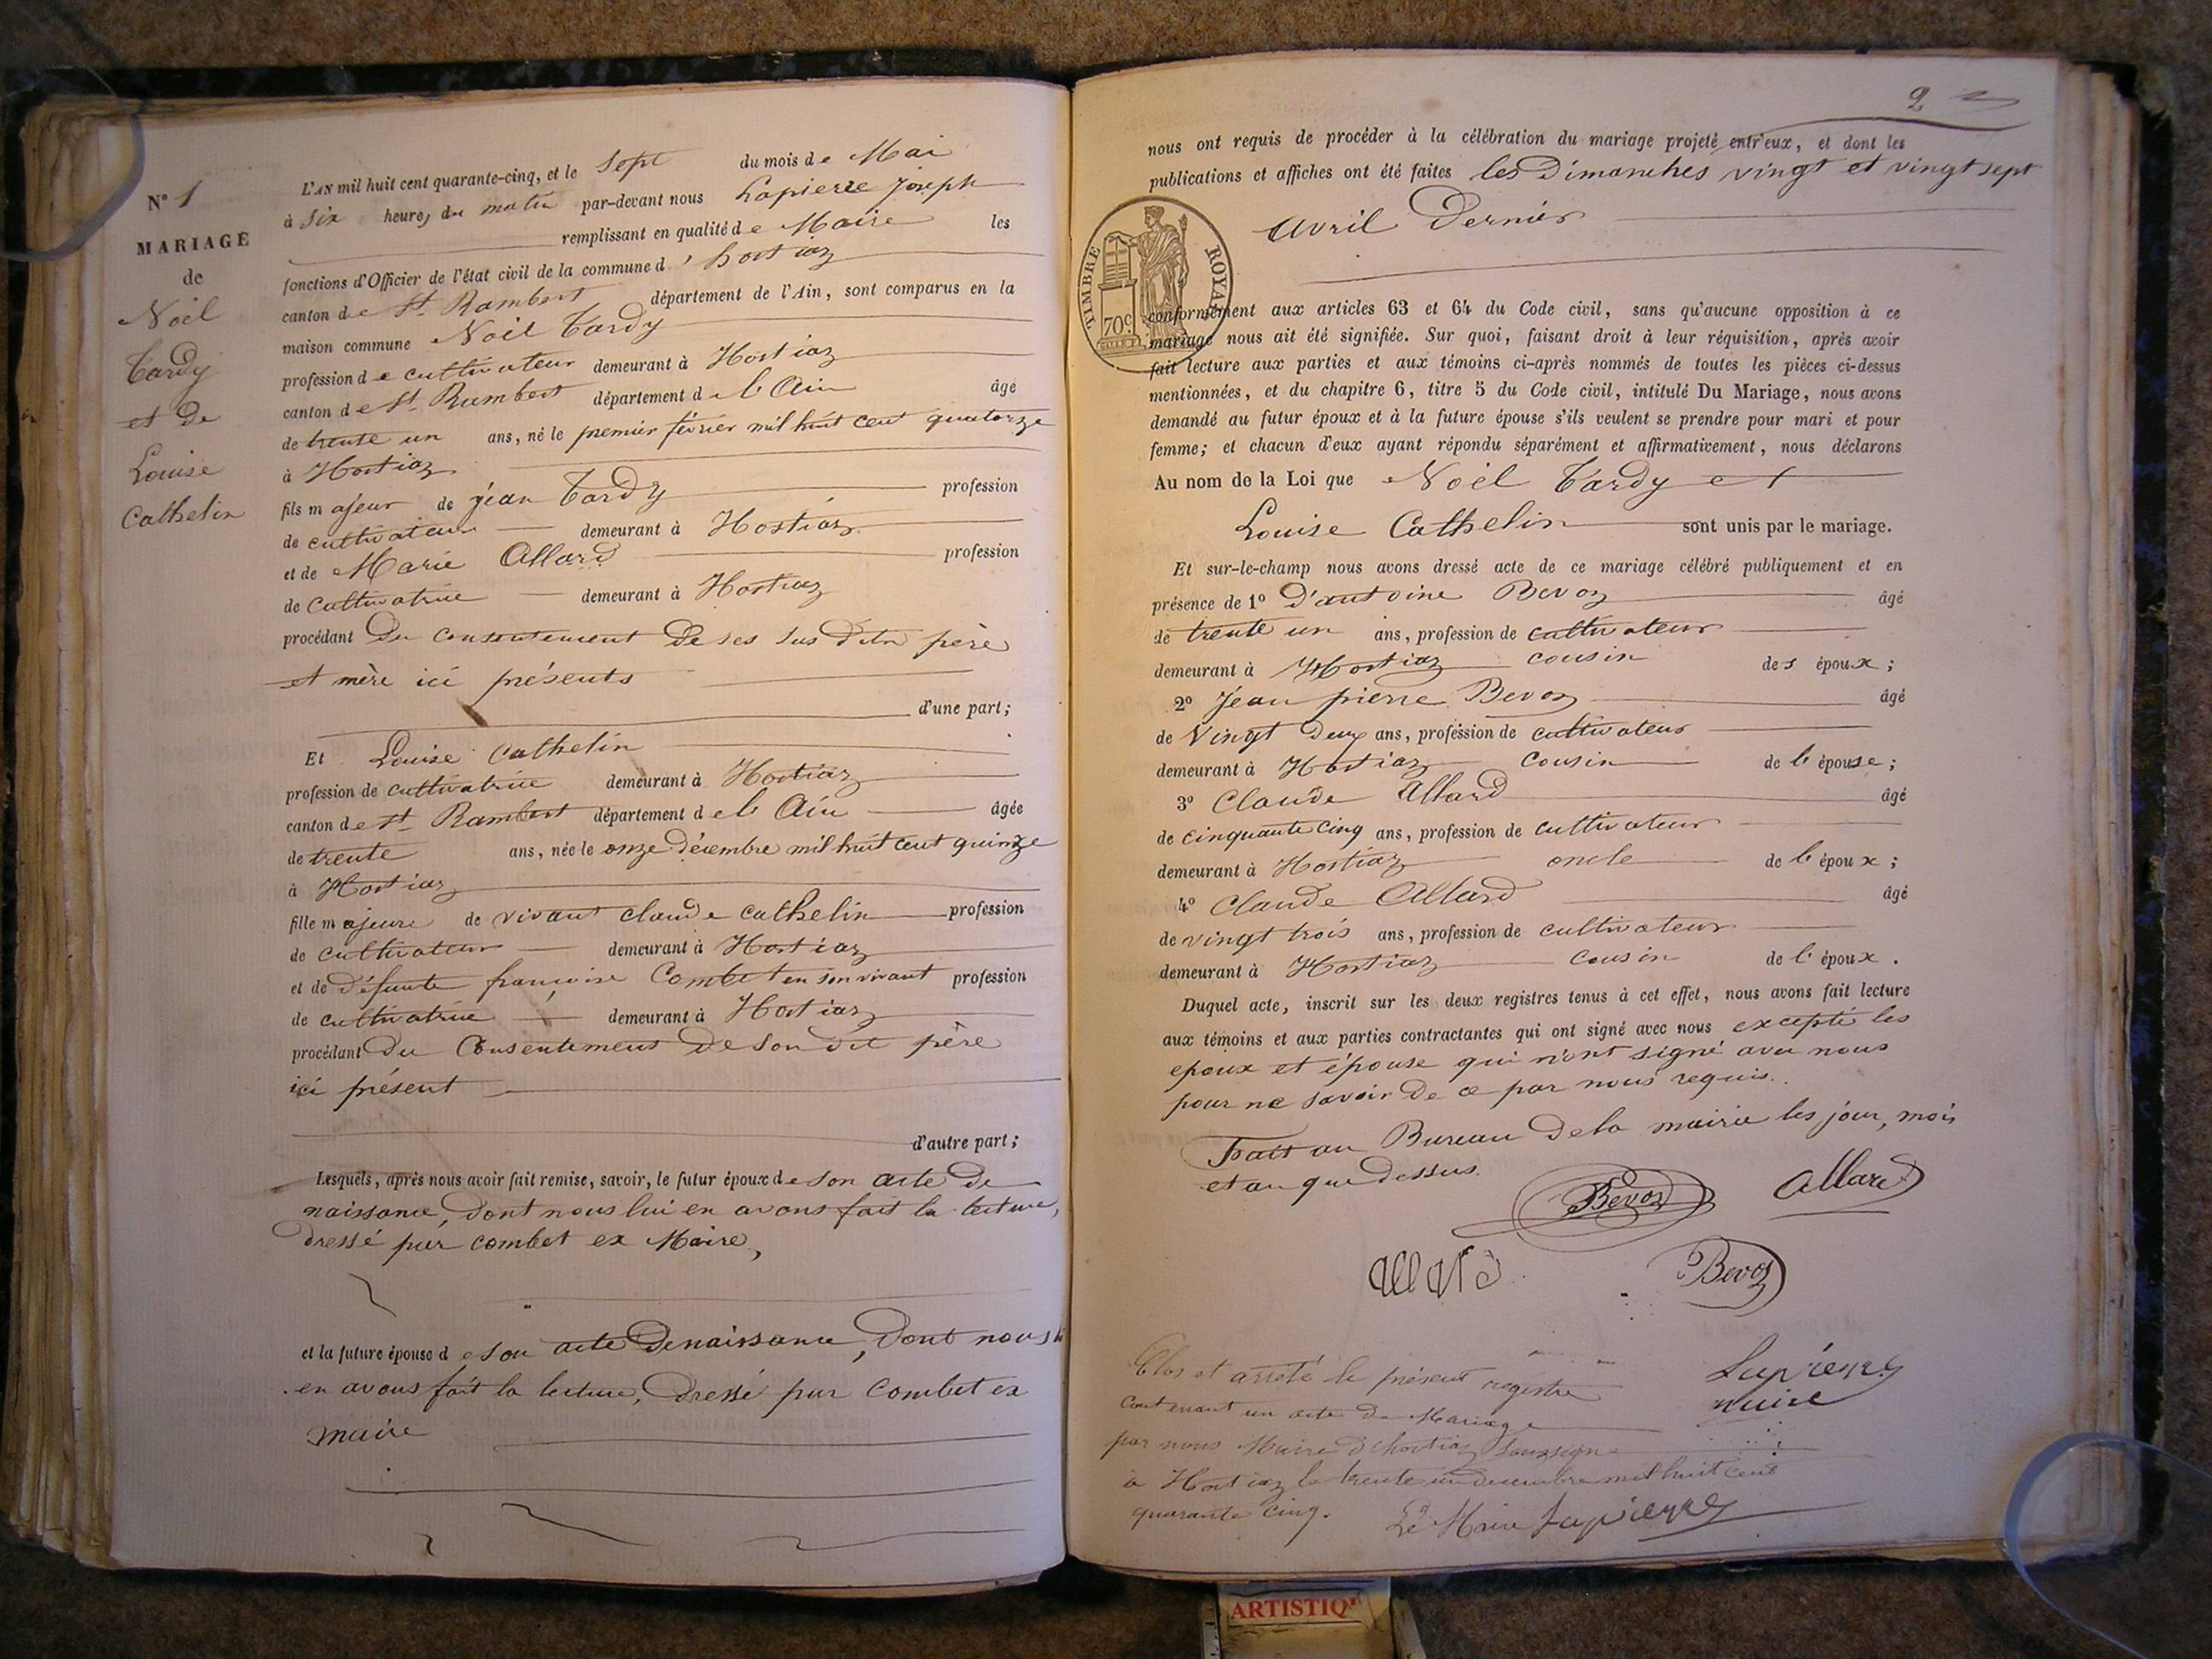 N° 1
MARIAGE
de
Noël
Tardy
et de
Louise
Cathelin
L'AN mil huit cent quarante-cinq, et le sept du mois de Mai
à six heures du matin par-devant nous Lapierre Joseph
remplissant en qualité de Maire les
fonctions d'Officier de l'état civil de la commune d'hostiaz
canton de St. Rambert département de l'Ain, sont comparus en la
maison commune Noël Tardy
profession de cultivateur demeurant à Hostiaz
canton de St. Rambert département de l'Ain âgé
de trente un ans, né le premier février mil huit cent quatorze
à Hostiaz
fils majeur de jean Tardy profession
de cultivateur demeurant à Hostiaz
et de Marie Allard profession
de cultivatrice demeurant à Hostiaz
procédant du consentement de ses susdits père
et mère ici présents
d'une part;
Et Louise Cathelin
profession de cultivatrice demeurant à Hostiaz
canton de St. Rambert département de l'Ain âgée
de trente ans, née le onze décembre mil huit cent quinze
à Hostiaz
fille majeure de vivant claude cathelin profession
de cultivateur demeurant à Hostiaz
et de défunte françoise Combet en son vivant profession
de cultivatrice demeurant à Hostiaz
procédant du Consentement de son dit père
ici présent
d'autre part;
Lesquels, après nous avoir fait remise, savoir, le futur époux de son acte de
naissance, dont nous lui en avons fait la lecture,
dressé par combet ex Maire,
et la future épouse de son acte de naissance, dont nous
en avons fait la lecture, dressé par combet ex
maire
2
nous ont requis de procéder à la célébration du mariage projeté entr'eux, et dont les
publications et affiches ont été faites les Dimanches vingt et vingt sept
avril dernier
TIMBRE ROYAL
70c
conformément aux articles 63 et 64 du Code civil, sans qu'aucune opposition à ce
mariage nous ait été signifiée. Sur quoi, faisant droit à leur réquisition, après avoir
fait lecture aux parties et aux témoins ci-après nommés de toutes les pièces ci-dessus
mentionnées, et du chapitre 6, titre 5 du Code civil, intitulé Du Mariage, nous avons
demandé au futur époux et à la future épouse s'ils veulent se prendre pour mari et pour
femme; et chacun d'eux ayant répondu séparément et affirmativement, nous déclarons
Au nom de la Loi que Noël Tardy et
Louise Cathelin sont unis par le mariage.
Et sur-le-champ nous avons dressé acte de ce mariage célébré publiquement et en
présence de 1° D'antoine Bevoz âgé
de trente un ans, profession de cultivateur
demeurant à Hostiaz cousin des époux;
2° Jean pierre Bevoz âgé
de Vingt deux ans, profession de cultivateur
demeurant à Hostiaz cousin de l'épouse;
3° Claude Allard âgé
de cinquante cinq ans, profession de cultivateur
demeurant à Hostiaz oncle de l'époux;
4° Claude Allard âgé
de vingt trois ans, profession de cultivateur
demeurant à Hostiaz cousin de l'époux.
Duquel acte, inscrit sur les deux registres tenus à cet effet, nous avons fait lecture
aux témoins et aux parties contractantes qui ont signé avec nous excepté les
epoux et épouse qui n'ont signé avec nous
pour ne savoir de ce par nous requis.
Fait au Bureau de la mairie les jour, mois
et an que dessus.
Bevoz Allard
allard Bevoz
Lapierre
maire
Clos et arreté le présent registre
contenant un acte de Mariage
par nous Maire d'hostiaz soussigné
à Hostiaz le trente un decembre mil huit cent
quarante cinq. Le Maire Lapierre
ARTISTIQ